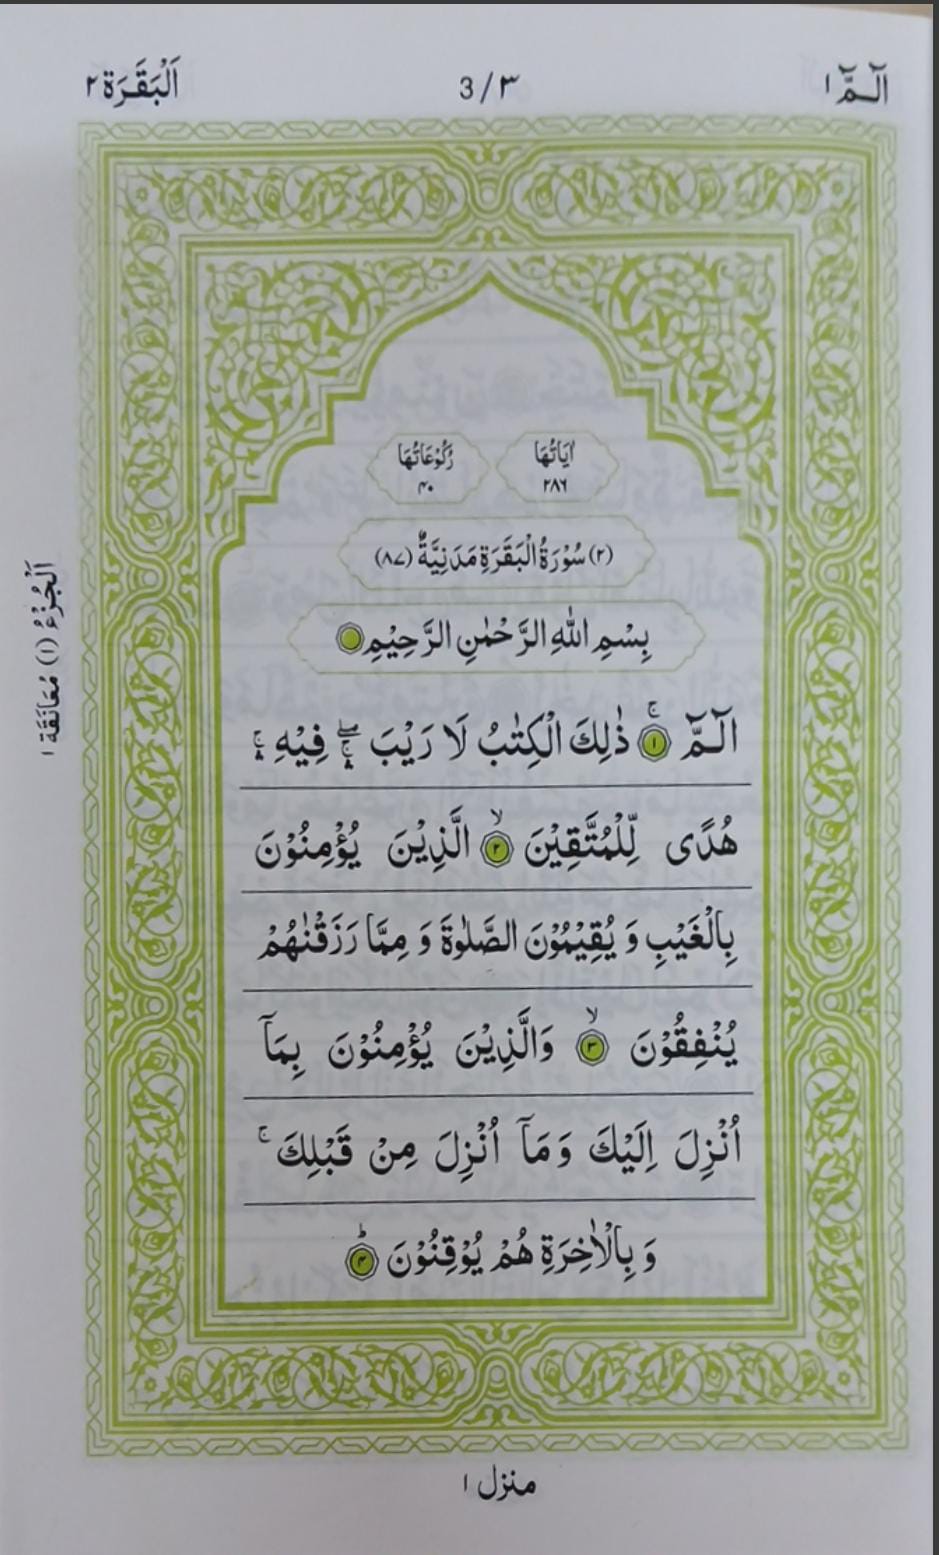 الٓـمّٓ ١
3/٣
اَلْبَقَرَة ٢
اٰيَاتُهَا
٢٨٦
رُكُوْعَاتُهَا
۴۰
(٢) سُوْرَةُ الْبَقَرَةِ مَدَنِيَّةٌ (٨٧)
بِسْمِ اللّٰهِ الرَّحْمٰنِ الرَّحِيْمِ
الٓـمّٓ ۚ ١ ذٰلِكَ الْكِتٰبُ لَا رَيْبَ ۛۖ فِيْهِ ۛۚ
هُدًى لِّلْمُتَّقِيْنَ ۙ ٢ الَّذِيْنَ يُؤْمِنُوْنَ
بِالْغَيْبِ وَ يُقِيْمُوْنَ الصَّلٰوةَ وَ مِمَّا رَزَقْنٰهُمْ
يُنْفِقُوْنَ ۙ ٣ وَالَّذِيْنَ يُؤْمِنُوْنَ بِمَآ
اُنْزِلَ اِلَيْكَ وَ مَآ اُنْزِلَ مِنْ قَبْلِكَ ۚ
وَ بِالْاٰخِرَةِ هُمْ يُوْقِنُوْنَ ؕ ۴
اَلْجُزْءُ (١) مُعَانَقَة ١
منزل ١